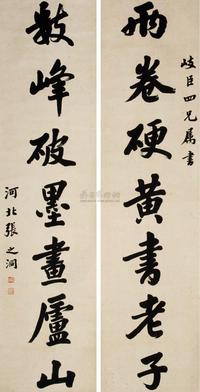 两卷硬黄書老子
歧臣四兄屬書
數峰破墨畫廬山
河北張之洞